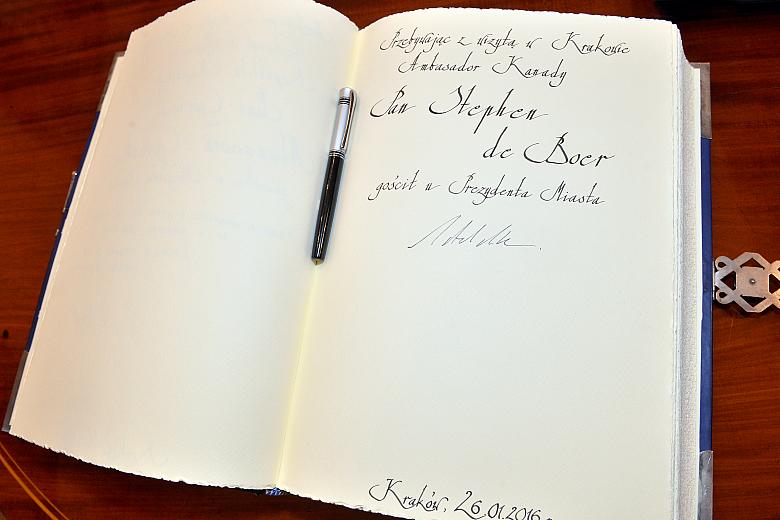 Przebywając z wizytą w Krakowie
Ambasador Kanady
Pan Stephen
de Boer
gościł u Prezydenta Miasta
Kraków, 26.01.2016 r.